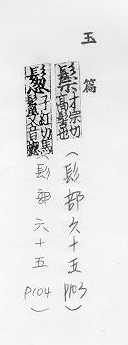 玉篇
鬃才宗切高髻也（髟部六十五 P103）
子紅切馬鬣又音（髟部六十五 P104）